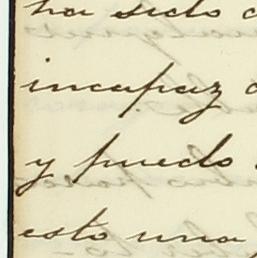 ha sido
incapaz
y puedo
esto una